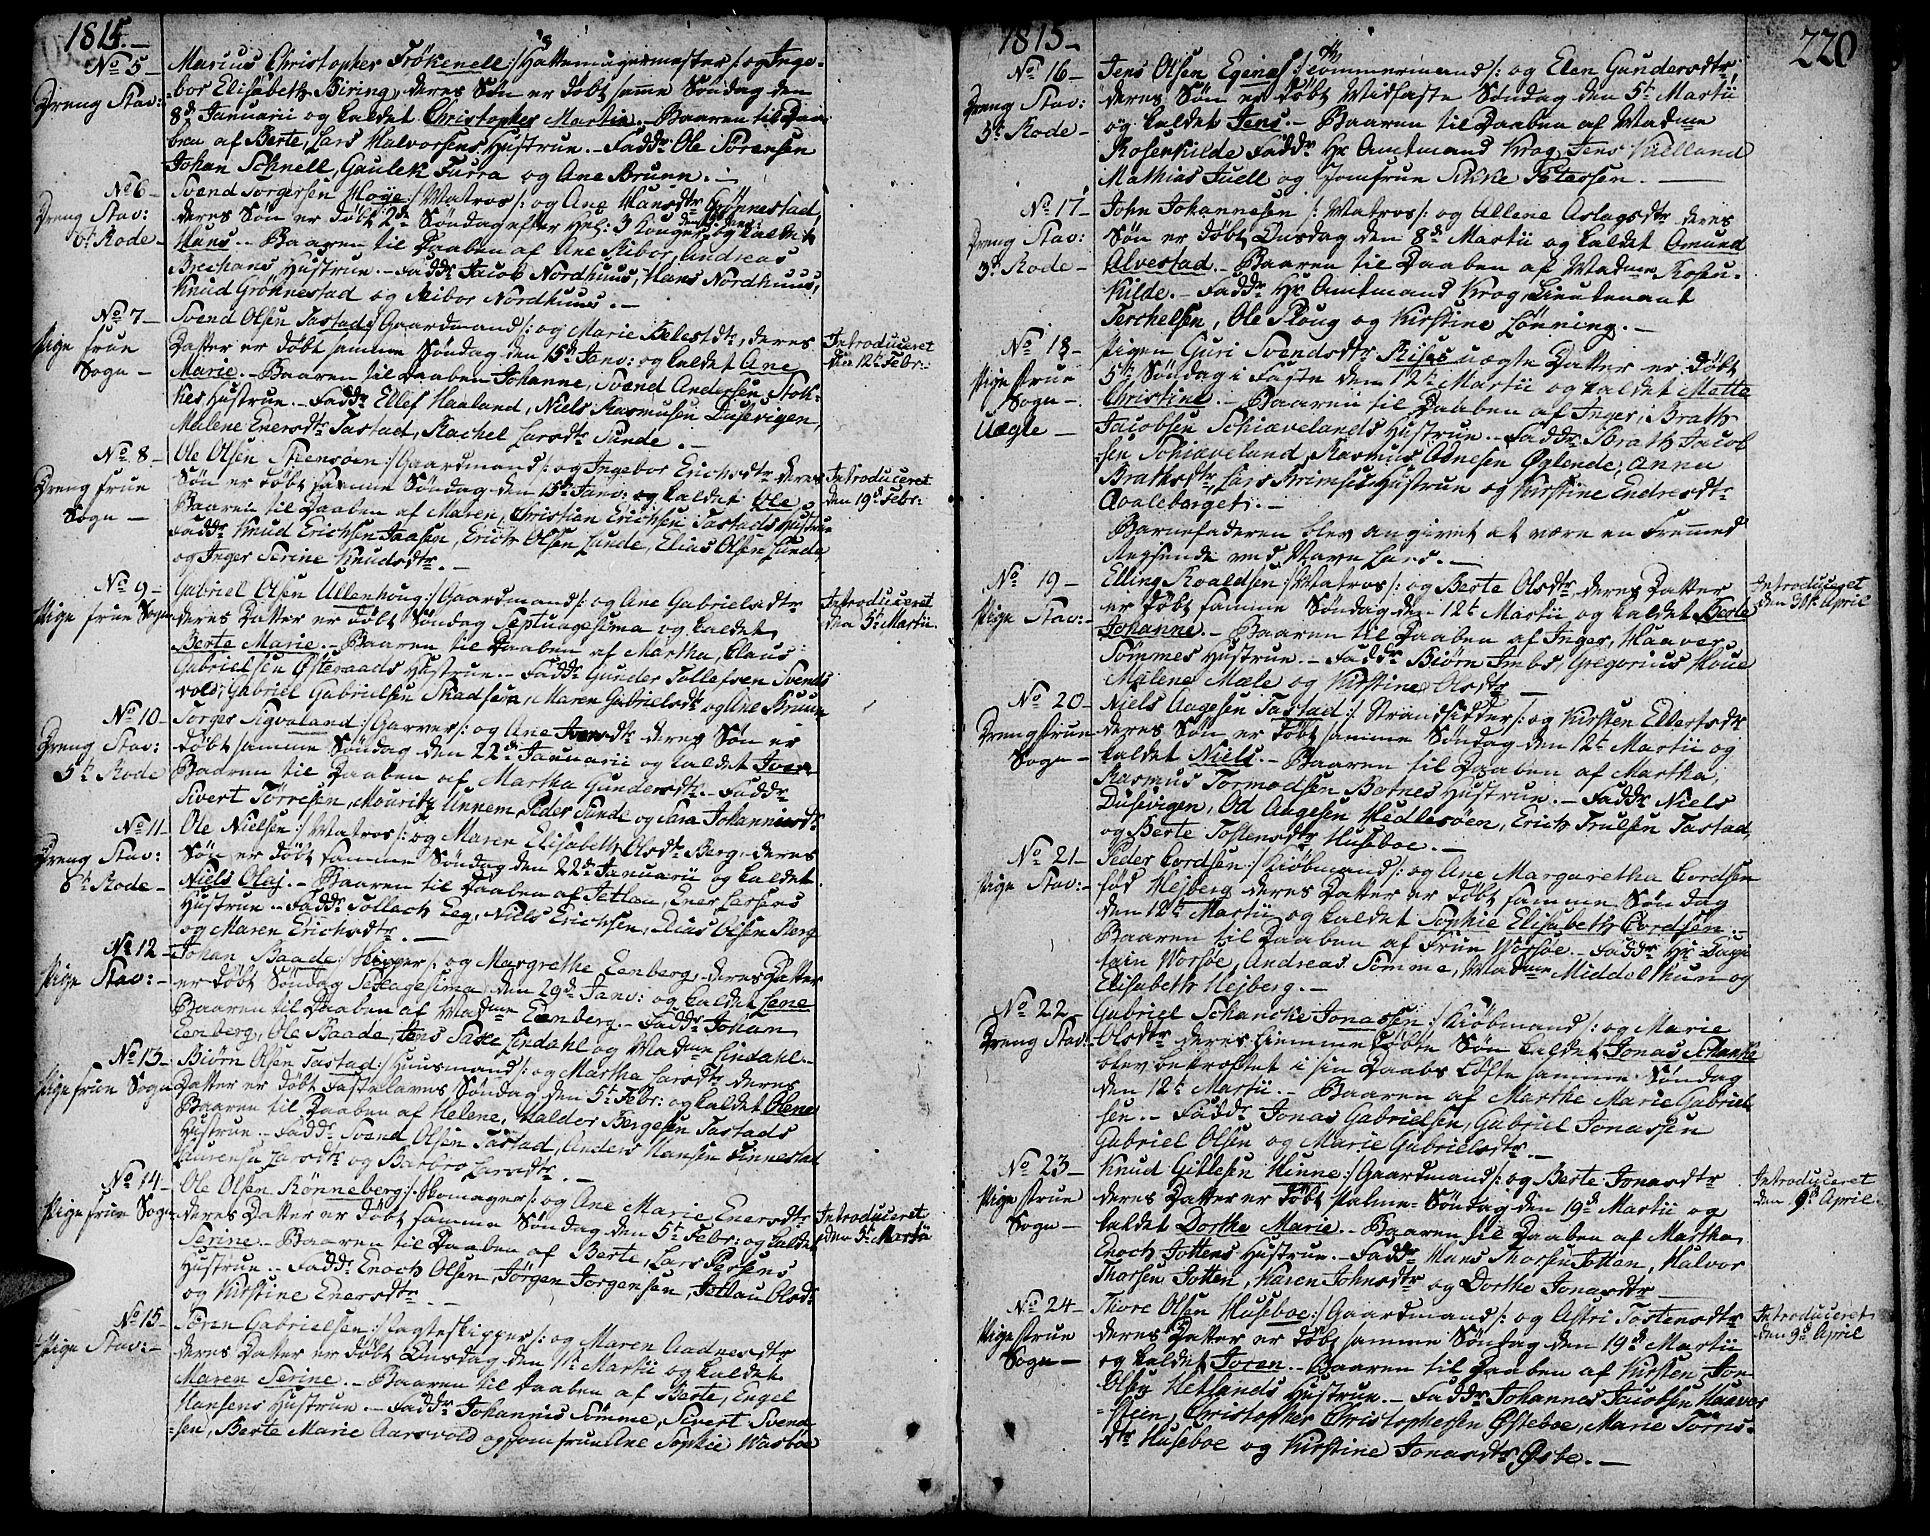 1815.
No 5
Dreng Stav:
Marcus Christopher Frökenell /: Hattemagermester :/ og Inge-
bor Elisabeth Biring, deres Søn er døbt samme Søndag den
8de Januarii og kaldet Christopher Martin. Baaren til Daa-
ben af Berte, Lars Halvorsens Hustrue. Faddr. Ole Sørensen
Johan Schnell, Gaulek Furra og Ane Bruun.
No 6
Dreng Stav:
6t. Rode
Svend Torgersen Høye /: Matros :/ og Ane Hansdtr Grønnestad,
deres Søn er døbt 2de Søndag efter Hel: 3 Konger og kaldet
Hans. Baaren til Daaben af Ane Ribor, Andreas
Brechans Hustrue. Faddr. Jacob Nordhuus, Hans Nordhuus,
Knud Grønnestad og Ribor Nordhuus.
No 7
Pige Frue
Sogn
Svend Olsen Tastad /: Gaardmand :/ og Marie Helestdtr, deres
Datter er døbt samme Søndag den 15de Janv: og kaldet Ane
Marie. Baaren til Daaben Johanne, Svend Andersen Stok-
kes Hustrue. Faddr. Ellef Haaland, Niels Rasmusen Dusevigen,
Malene Enersdtr Tastad, Rachel Larsdtr Sunde.
Introduceret
den 12te Febr:
No 8
Dreng Frue
Sogn
Ole Olsen Steensøen /: Gaardmand :/ og Ingebor Erichsdtr deres
Søn er døbt samme Søndag den 15de Janv: og kaldet Ole
Baaren til Daaben af Maren, Christian Erichsen Tastads Hustrue
Faddr. Knud Erichsen Jaasen, Erich Olsen Sunde, Elias Olsen Sunde
og Inger Serine Knudsdtr.
Introduceret
den 19de Febr:
No 9
Pige Frue Sogn
Gabriel Olsen Ullenhoug /: Gaardmand :/ og Ane Gabrielsdtr
deres Datter er døbt Søndag Septuagesima og kaldet
Berte Marie. Baaren til Daaben af Martha, Claus
Gabrielsen Østeraads Hustrue. Faddr. Gunder Tollefsen Svends
vold, Gabriel Gabrielsen Skadsem, Maren Gabrielsdtr og Ane Struun
Introduceret
den 5te Martii
No 10
Dreng Stav:
5te Rode
Torger Sigvaland /: Garver :/ og Ane Iversdtr deres Søn er
døbt samme Søndag den 22de Januarii og kaldet Iver
Baaren til Daaben af Martha Gundersdtr. Faddr.
Sivert Tørresen, Mouritz Unnem, Peder Sunde og Sara Johannesdtr
No 11
Dreng Stav:
8te Rode
Ole Nielsen /: Matros :/ og Maren Elisabeth Olsdtr Berg, deres
Søn er døbt samme Søndag den 22de Januarii og kaldet
Niels Olaj. Baaren til Daaben af Jetlou, Ener Larsens
Hustrue. Faddr. Tollach Eeg, Niels Erichsen, Elias Olsen Berg
og Maren Erichsdtr.
No 12
Pige Stav:
Johan Baade /: Skipper :/ og Margrethe Eenberg, deres Datter
er døbt Søndag Sexagesima den 29de Janv: og kaldet Lene
Baaren til Daaben af Madme Eenberg. Faddr. Johan
Eenberg, Ole Baade, Jens Saxe Lindahl og Madme Lindahl.
No 13
Pige Frue Sogn
Biørn Olsen Tastad /: Huusmand :/ og Martha Larsdtr deres
Datter er døbt Fastelavns Søndag den 5te Febr: og kaldet Olene
Baaren til Daaben af Helene, Haldor Bergesen Tastads
Hustrue. Faddr. Svend Olsen Tastad, Anders Hansen Finnestad
Laurensa Larsdtr og Barbro Larsdtr.
No 14
Pige Frue Sogn
Ole Olsen Rønneberg /: Skomager :/ og Ane Marie Enersdtr
deres Datter er døbt samme Søndag den 5te Febr: og kaldet
Serine. Baaren til Daaben af Berte, Lars Persens
Hustrue. Faddr. Enoch Olsen, Jørgen Jørgensen, Jetlau Olsdtr
og Kirstine Enersdtr.
Introduceret
den 5te Martii
No 15
Pige Stav:
Søren Gabrielsen /: Jagteskipper :/ og Maren Aadnesdtr
deres Datter er døbt Onsdag den 1te Martii og kaldet
Maren Serine. Baaren til Daaben af Berte, Engel
Hansens Hustrue. Faddr. Johannis Sømme, Sivert Svend-
sen, Berte Marie Aarsvold og Jomfrue Ane Sophie Wasbøe
1815
220
No 16
Dreng Stav:
3te Rode
Jens Olsen Egenæs /: Tømmermand :/ og Elen Gundersdtr
deres Søn er døbt Midfaste Søndag den 5te Martii
og kaldet Jens. Baaren til Daaben af Madme
Rosenkilde Faddr. Hr. Amtmand Krog, Jens Kielland
Mathias Juell og Jomfrue Sikke Petersen.
No 17
Dreng Stav:
3de Rode
John Johannesen /: Matros :/ og Allene Aslagsdtr deres
Søn er døbt Onsdag den 8de Martii og kaldet Omund
Alvestad. Baaren til Daaben af Madme Rosen-
kilde. Faddr. Hr. Amtmand Krog, Lieutenant
Terchelsen, Ole Ploug og Kirstine Lønning.
No 18
Pige Frue
Sogn
Uægte
Pigen Guri Svendsdtr Riises uægte Datter er døbt
5te Søndag i Faste den 12te Martii og kaldet Mette
Christine. Baaren til Daaben af Inger, Brath
Jacobsen Schiævelands Hustrue. Faddr. Brath Jacob-
sen Schiæveland, Rasmus Odnesen Øglende, Anna
Brathsdtr, Lars Strimsti Hustrue og Kirstine Endresdtr
Avaleberget.
Barnefaderen blev angivet at være en Fremmed
Reysende ved Navn Lars.
No 19
Pige Stav:
Elling Roaldsen /: Matros :/ og Berte Olsdtr, deres Datter
er døbt samme Søndag den 12te Martii og kaldet Berte
Johanne. Baaren til Daaben af Inger, Haaver
Sømmes Hustrue. Faddr. Biørn Imbs, Gregorius Houe
Malene Mæle og Kirstine Olsdtr
Introduceret
den 30te April
No 20
Dreng Frue
Sogn
Niels Aagesen Tastad /: Strandsidder :/ og Kirsten Ellertsdtr
deres Søn er døbt samme Søndag den 12te Martii og
kaldet Niels. Baaren til Daaben af Martha
Rasmus Tormodsen Botnes Hustrue. Faddr. Niels
Dusevigen, Od Aagesen Hedlesøen, Erich Trulsen Tastad
og Berte Tostensdtr Huseboe.
No 21
Pige Stav:
Peder Cordsen /: Kiøbmand :/ og Ane Margaretha Cordsen
fød Hejberg deres Datter er døbt samme Søndag
den 12te Martii og kaldet Sophie Elisabeth Cordsen.
Baaren til Daaben af Frue Worsøe. Faddr. Hr. Capi
tain Worsøe, Andreas Sømme, Madme Middelthun og
Elisabeth Hejberg.
No 22
Dreng Stav:
Gabriel Schancke Jonassen /: Kiøbmand :/ og Marie
Olsdtr deres Hiemmedøbte Søn kaldet Jonas Schanke
blev bekræftet i sin Daabs Løfte samme Søndag
den 12te Martii. Baaren af Marthe Marie Gabriel
sen. Faddr. Jonas Gabrielsen, Gabriel Jonassen
Gabriel Olsen og Marie Gabrielsdtr.
No 23
Pige Frue
Sogn
Knud Gitlesen Hinne /: Gaardmand :/ og Berte Jonasdtr
deres Datter er døbt Palme Søndag den 19de Martii og
kaldet Dorthe Marie. Baaren til Daaben af Martha
Enoch Jottens Hustrue. Faddr. Hans Thorsen Jotten, Halvor
Thorsen Jotten, Karen Johnsdtr og Dorthe Jonasdtr
Introduceret
den 9de April
No 24
Pige Frue
Sogn
Thore Olsen Huseboe /: Gaardmand :/ og Astri Tostensdtr
deres Datter er døbt samme Søndag den 19de Martii
og kaldet Joren. Baaren til Daaben af Kirsten, Jon
Olsen Hetlands Hustrue. Faddr. Johannes Jacobsen Haavar-
stein, Christopher Christophersen Østeboe, Marie Tørris-
dtr Huseboe og Kirstine Jonasdtr Østbe.
Introduceret
den 9de April